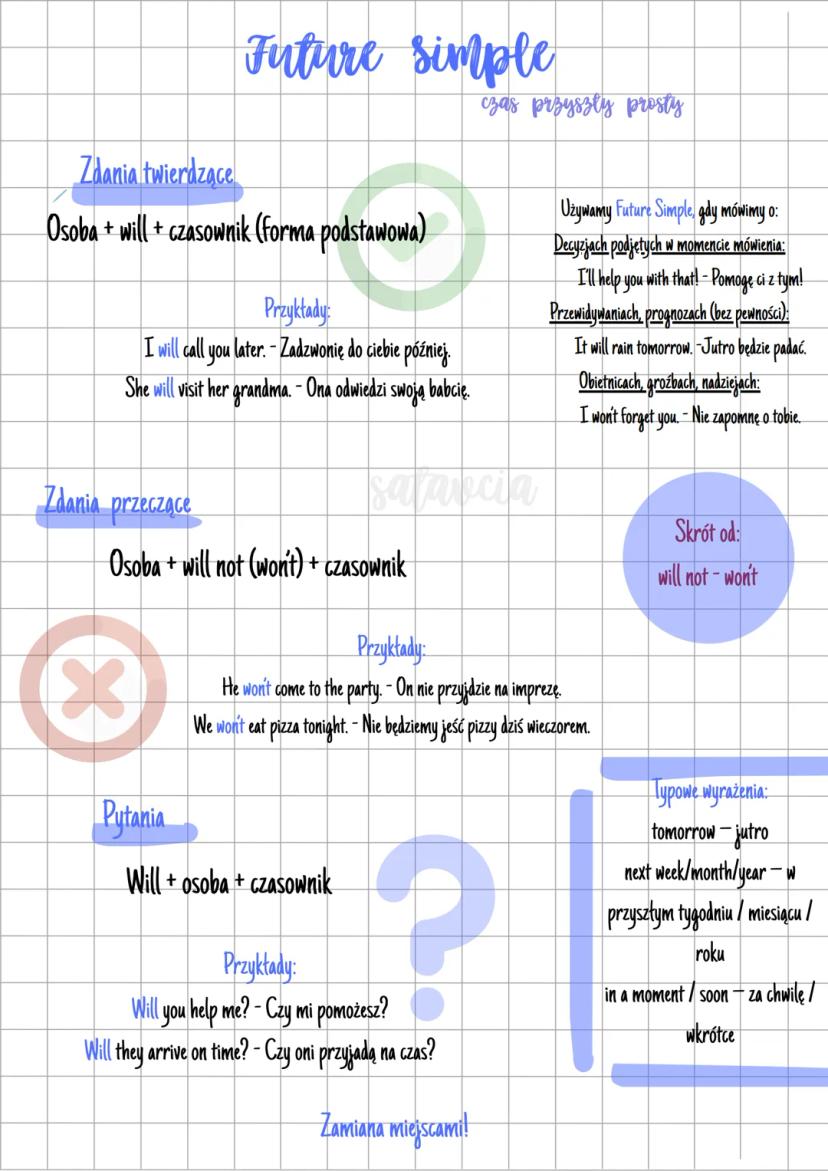 Future simple
czas przyszły prosty
Zdania twierdzące
Osoba + will + czasownik (forma podstawowa)
Przykłady:
I will call you later. - Zadzwonię do ciebie później.
She will visit her grandma. - Ona odwiedzi swoją babcię.
Używamy Future Simple, gdy mówimy o:
Decyzjach podjętych w momencie mówienia:
I'll help you with that! - Pomogę ci z tym!
Przewidywaniach, prognozach (bez pewności):
It will rain tomorrow. -Jutro będzie padać.
Obietnicach, groźbach, nadziejach:
I won't forget you. - Nie zapomnę o tobie.
salavcia
Zdania przeczące
Osoba + will not (won't) + czasownik
Skrót od:
will not - won't
Przykłady:
He won't come to the party. - On nie przyjdzie na imprezę.
We won't eat pizza tonight. - Nie będziemy jeść pizzy dziś wieczorem.
Pytania
Will + osoba + czasownik
Przykłady:
Will you help me? - Czy mi pomożesz?
Will they arrive on time? - Czy oni przyjadą na czas?
Typowe wyrażenia:
tomorrow — jutro
next week/month/year — w
przyszłym tygodniu / miesiącu /
roku
in a moment / soon — za chwilę /
wkrótce
Zamiana miejscami!